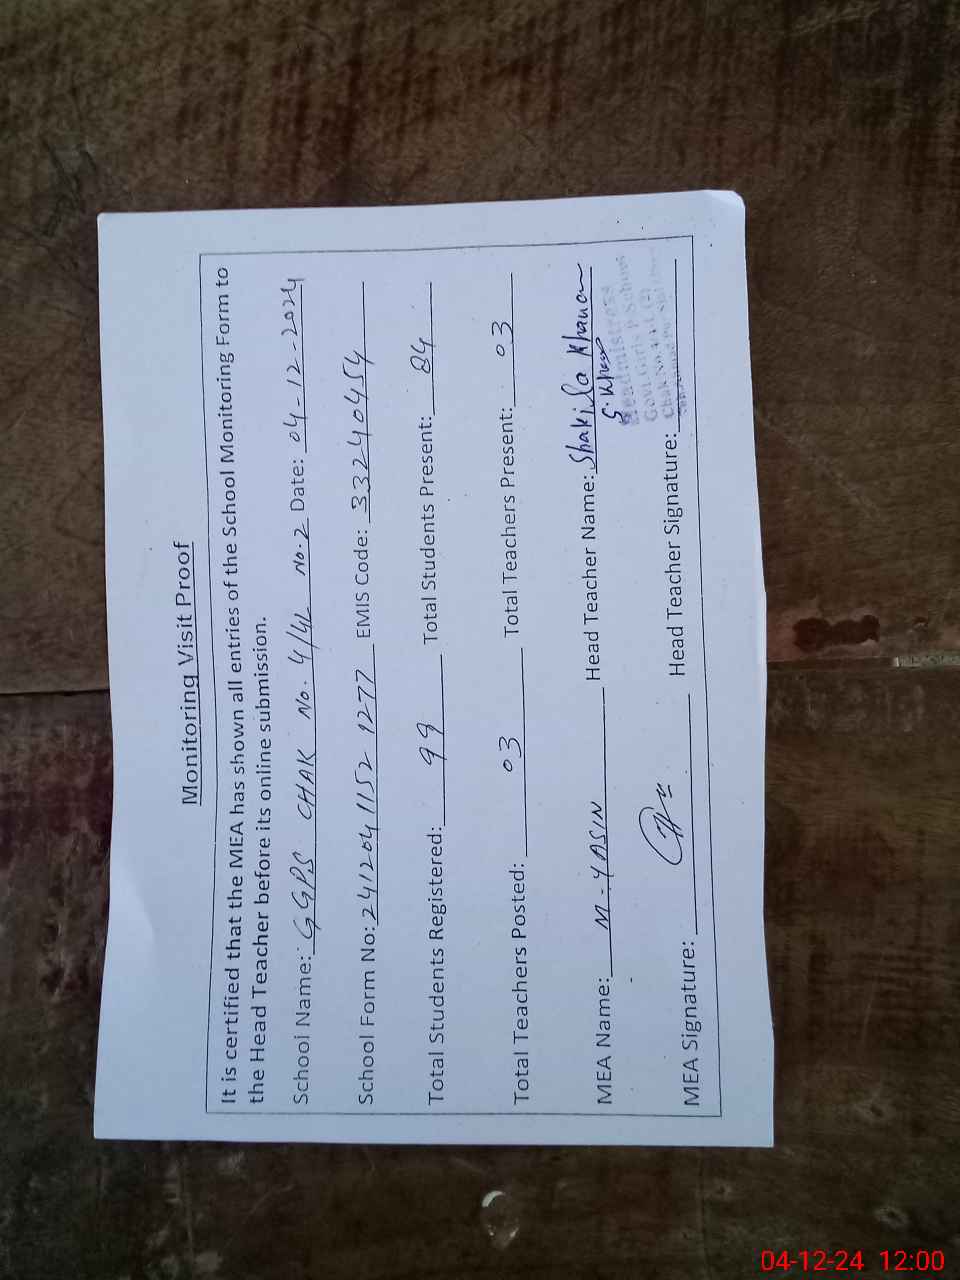 Monitoring Visit Proof
It is certified that the MEA has shown all entries of the School Monitoring Form to
the Head Teacher before its online submission.
School Name: GGPS CHAK No. 4/4L No.2 Date: 04-12-2024
School Form No: 24120411521277 EMIS Code: 33240454
Total Students Registered: 99 Total Students Present: 84
Total Teachers Posted: 03 Total Teachers Present: 03
MEA Name: M-YASIN Head Teacher Name: Shakila Khanam
MEA Signature: Head Teacher Signature:
Headmistress
Govt Girls P. School
Chak No.
04-12-24 12:00